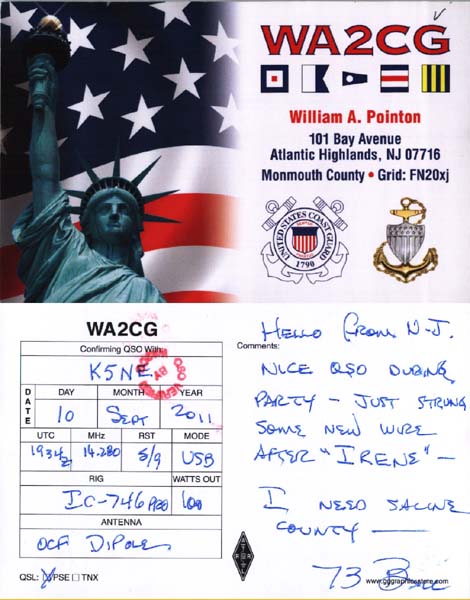 WA2CG
William A. Pointon
101 Bay Avenue
Atlantic Highlands, NJ 07716
Monmouth County • Grid: FN20xj
UNITED STATES COAST GUARD
1790
WA2CG
Confirming QSO With:
K5NE
DATE
DAY MONTH YEAR
10 Sept 2011
UTC MHz RST MODE
1934z 14.280 5/9 USB
RIG WATTS OUT
IC-746 PRO 100
ANTENNA
OCF DIPOLE
QSL: PSE TNX
Hello from N.J.
Comments:
NICE QSO DURING
PARTY - JUST STRUNG
SOME NEW WIRE
AFTER "IRENE" -
I NEED SALINE
COUNTY -
73 Bill